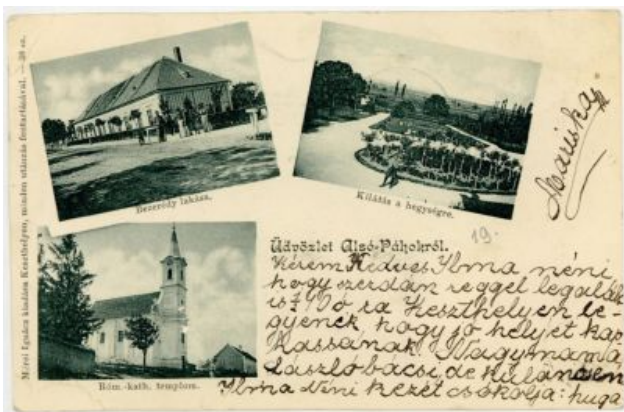 Mérei Ignácz kiadása Keszthelyen, minden utánzás fentartásával. — 30 sz.
Bezerédy lakása.
Kilátás a hegységre.
Róm.-kath. templom.
Üdvözlet Alsó-Páhokról.
19.
Mariska
Kérem Kedves Ilma néni
hogy szerdán reggel legalább
is 7 10 ó ra Keszthelyen le-
gyenek, hogy jó helyet kap
hassanak. Nagymama
László bácsi, de különösen
Ilma Néni kezét csókolja: huga